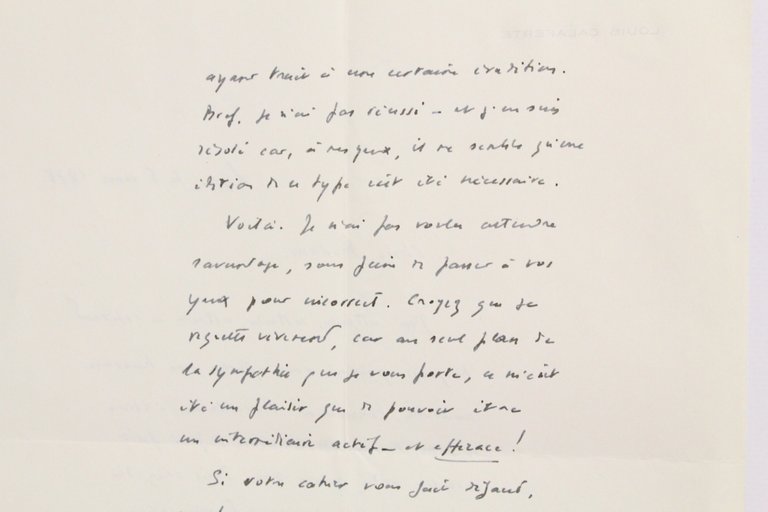 LOUIS CALAFERTE
ayant trait à une certaine érudition.
Bref, je n'ai pas réussi – et j'en suis
désolé car, à mes yeux, il me semble qu'une
édition de ce type eût été nécessaire.
Voilà. Je n'ai pas voulu attendre
davantage, sous peine de passer à vos
yeux pour incorrect. Croyez que je
regrette vivement, car au seul plan de
la sympathie que je vous porte, ce m'eût
été un plaisir que de pouvoir être
un intermédiaire actif – et efficace !
Si votre cahier vous fait défaut,